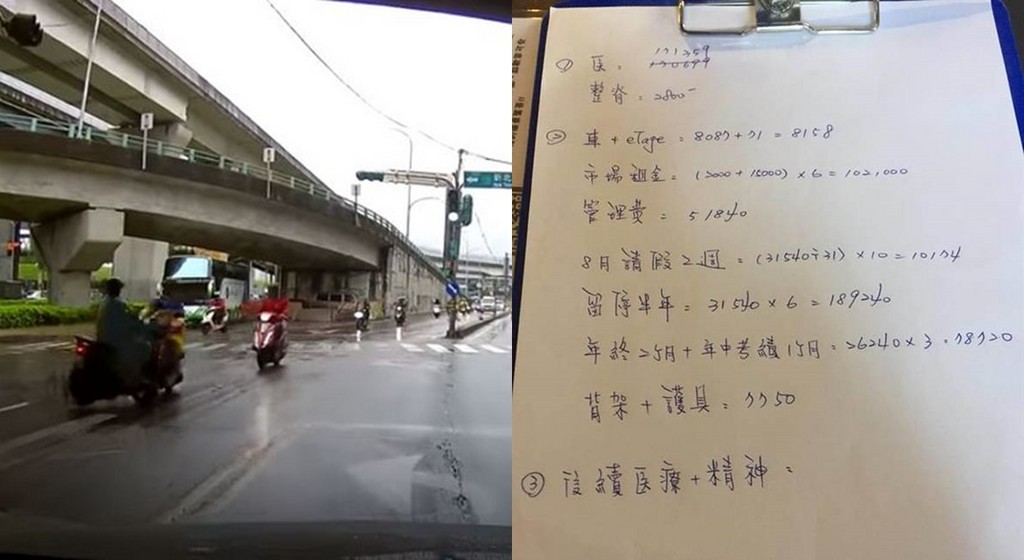 新北
① 医: 171359
130699
整脊: 2800-
② 車 + eTape = 8087+71 = 8158
市場租金 = (2000+15000) × 6 = 102,000
管理費 = 51840
8月請假2週 = (31540÷31) × 10 = 10174
留停半年 = 31540 × 6 = 189240
年終2月 + 年中考績1月 = 26240 × 3 = 78720
背架 + 護具 = 7750
③ 後續医療 + 精神 =